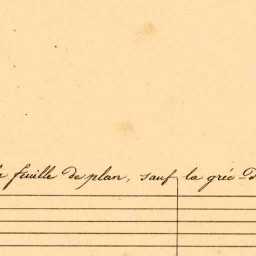 feuille de plan, sauf la gréc-